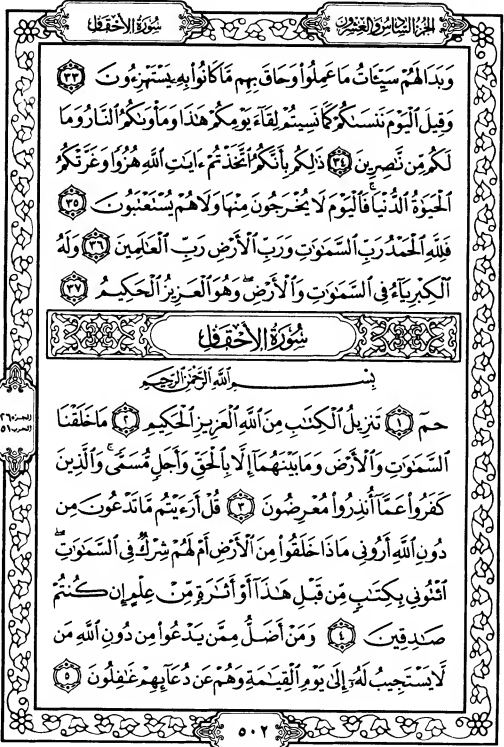 الجزء السادس والعشرون
سورة الأحقاف
وَبَدَا لَهُمْ سَيِّئَاتُ مَا عَمِلُوا وَحَاقَ بِهِم مَّا كَانُوا بِهِ يَسْتَهْزِءُونَ ٣٣
وَقِيلَ ٱلْيَوْمَ نَنسَىٰكُمْ كَمَا نَسِيتُمْ لِقَآءَ يَوْمِكُمْ هَٰذَا وَمَأْوَىٰكُمُ ٱلنَّارُ وَمَا
لَكُم مِّن نَّٰصِرِينَ ٣٤ ذَٰلِكُم بِأَنَّكُمُ ٱتَّخَذْتُمْ ءَايَٰتِ ٱللَّهِ هُزُوًا وَغَرَّتْكُمُ
ٱلْحَيَوٰةُ ٱلدُّنْيَا ۚ فَٱلْيَوْمَ لَا يُخْرَجُونَ مِنْهَا وَلَا هُمْ يُسْتَعْتَبُونَ ٣٥
فَلِلَّهِ ٱلْحَمْدُ رَبِّ ٱلسَّمَٰوَٰتِ وَرَبِّ ٱلْأَرْضِ رَبِّ ٱلْعَٰلَمِينَ ٣٦ وَلَهُ
ٱلْكِبْرِيَآءُ فِى ٱلسَّمَٰوَٰتِ وَٱلْأَرْضِ ۖ وَهُوَ ٱلْعَزِيزُ ٱلْحَكِيمُ ٣٧
سُورَةُ الأَحْقَافِ
بِسْمِ ٱللَّهِ ٱلرَّحْمَٰنِ ٱلرَّحِيمِ
حمٓ ١ تَنزِيلُ ٱلْكِتَٰبِ مِنَ ٱللَّهِ ٱلْعَزِيزِ ٱلْحَكِيمِ ٢ مَا خَلَقْنَا
ٱلسَّمَٰوَٰتِ وَٱلْأَرْضَ وَمَا بَيْنَهُمَآ إِلَّا بِٱلْحَقِّ وَأَجَلٍ مُّسَمًّى ۚ وَٱلَّذِينَ
كَفَرُوا عَمَّآ أُنذِرُوا مُعْرِضُونَ ٣ قُلْ أَرَءَيْتُم مَّا تَدْعُونَ مِن
دُونِ ٱللَّهِ أَرُونِى مَاذَا خَلَقُوا مِنَ ٱلْأَرْضِ أَمْ لَهُمْ شِرْكٌ فِى ٱلسَّمَٰوَٰتِ ۖ
ٱئْتُونِى بِكِتَٰبٍ مِّن قَبْلِ هَٰذَآ أَوْ أَثَٰرَةٍ مِّنْ عِلْمٍ إِن كُنتُمْ
صَٰدِقِينَ ٤ وَمَنْ أَضَلُّ مِمَّن يَدْعُوا مِن دُونِ ٱللَّهِ مَن
لَّا يَسْتَجِيبُ لَهُۥٓ إِلَىٰ يَوْمِ ٱلْقِيَٰمَةِ وَهُمْ عَن دُعَآئِهِمْ غَٰفِلُونَ ٥
الجزء ٢٦
الحزب ٥١
٥٠٢